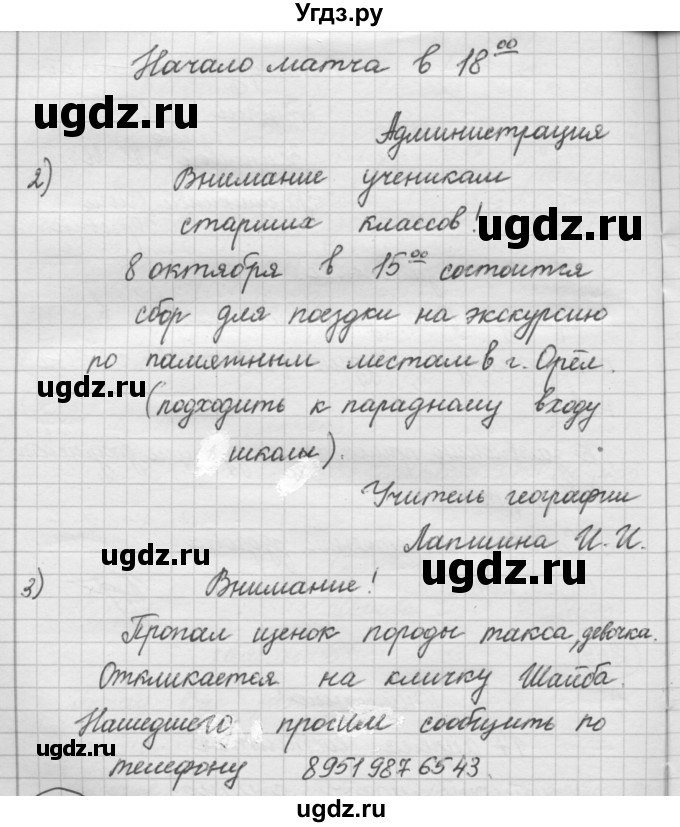 Угдз.ру
Начало матча в 18⁰⁰
ugdz.ru
Администрация
2) Внимание ученикам
старших классов!
ugdz.ru
8 октября в 15⁰⁰ состоится
сбор для поездки на экскурсию
по памятным местам в г. Орёл.
ugdz.ru
(подходить к парадному входу
школы).
Учитель географии
Лапшина И. И.
ugdz.ru
ugdz.ru
3) Внимание!
Пропал щенок породы такса, девочка.
Откликается на кличку Шайба.
Нашедшего просим сообщить по
ugdz.ru
телефону 89519876543.
ugdz.ru
ugdz.ru